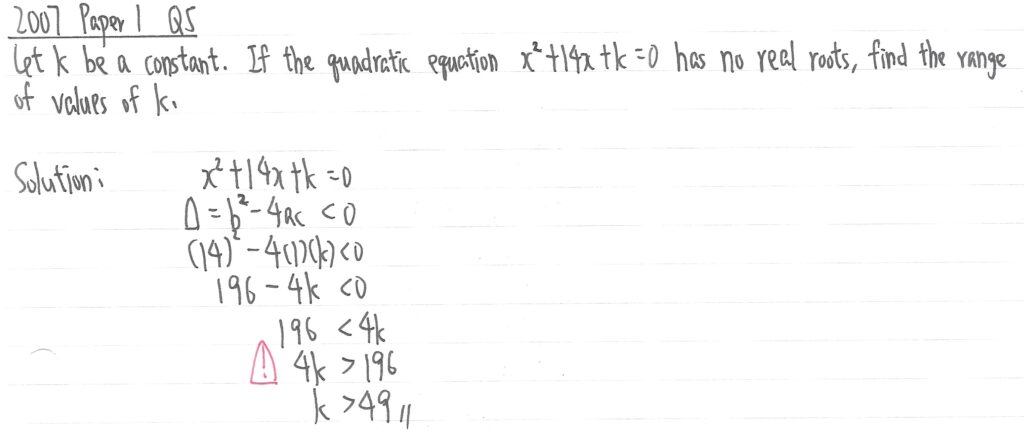 2007 Paper 1 Q5
Let k be a constant. If the quadratic equation x²+14x+k=0 has no real roots, find the range
of values of k.
Solution: x²+14x+k=0
Δ=b²-4ac<0
(14)²-4(1)(k)<0
196-4k<0
196<4k
! 4k>196
k>49//